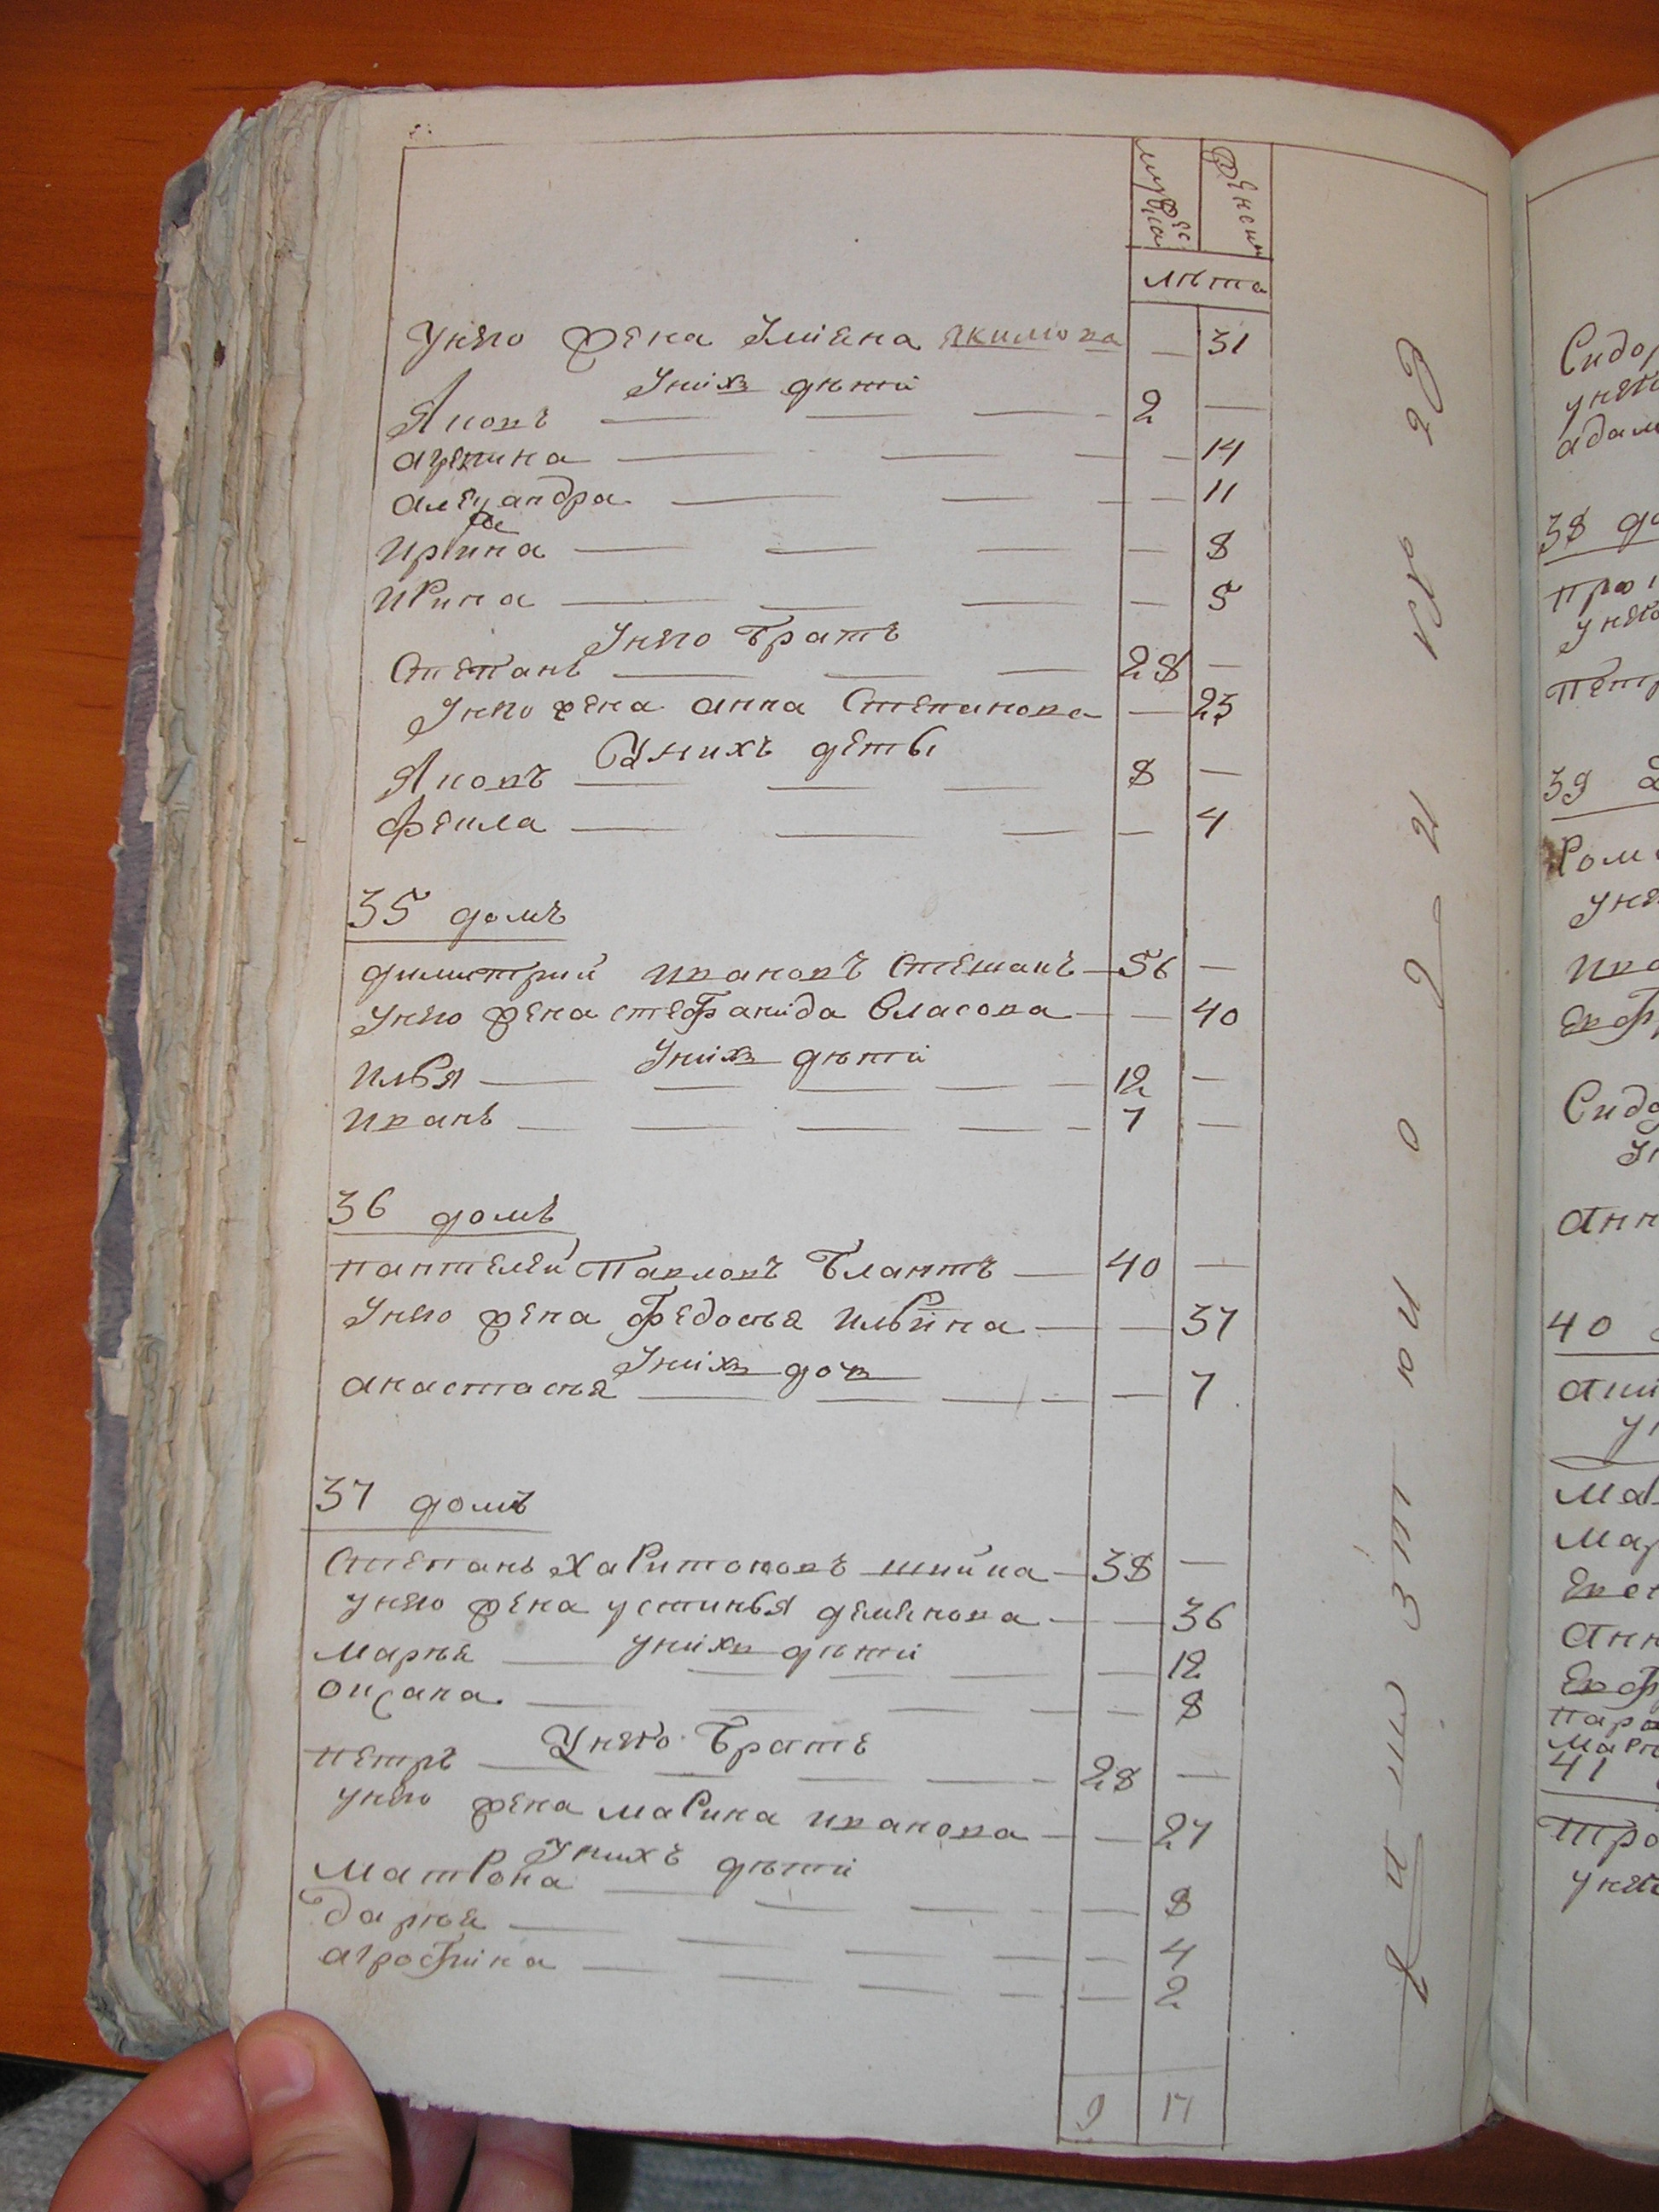 мужеска
женски
лѣта
Унего жена Умiена Якимова — 31
Унихъ дѣти
Яковъ — 2 —
агрепина — 14
александра — 11
Ирина — 8
Ирина — 5
Унего братъ
Степанъ — 28 —
Унего жена анна Степанова — 23
Унихъ деты
Яковъ — 8 —
фекла — 4
35 домъ
димитрий ивановъ Стешанъ — 56 —
Унего жена стефанида власова — 40
Унихъ дѣти
илья — 12 —
иванъ — 7 —
36 домъ
пантелей Павловъ Блантъ — 40 —
Унего жена федосья ильина — 37
Унихъ доч
анастасья — 7
37 домъ
Степанъ Харитоновъ шийка — 38 —
унего жена устинья деменова — 36
унихъ дѣти
марья — 12
оксана — 8
Унего братъ
петръ — 28 —
унего жена марина иванова — 27
Унихъ дѣти
матрона — 8
дарья — 4
агрофиина — 2
9 17
Сидо
унего
адам
38 до
про
унего
петр
39
Ром
Уне
ива
Евф
Сидо
Ун
Анн
40
Мар
Анн
Евф
пара
41
тро
унего